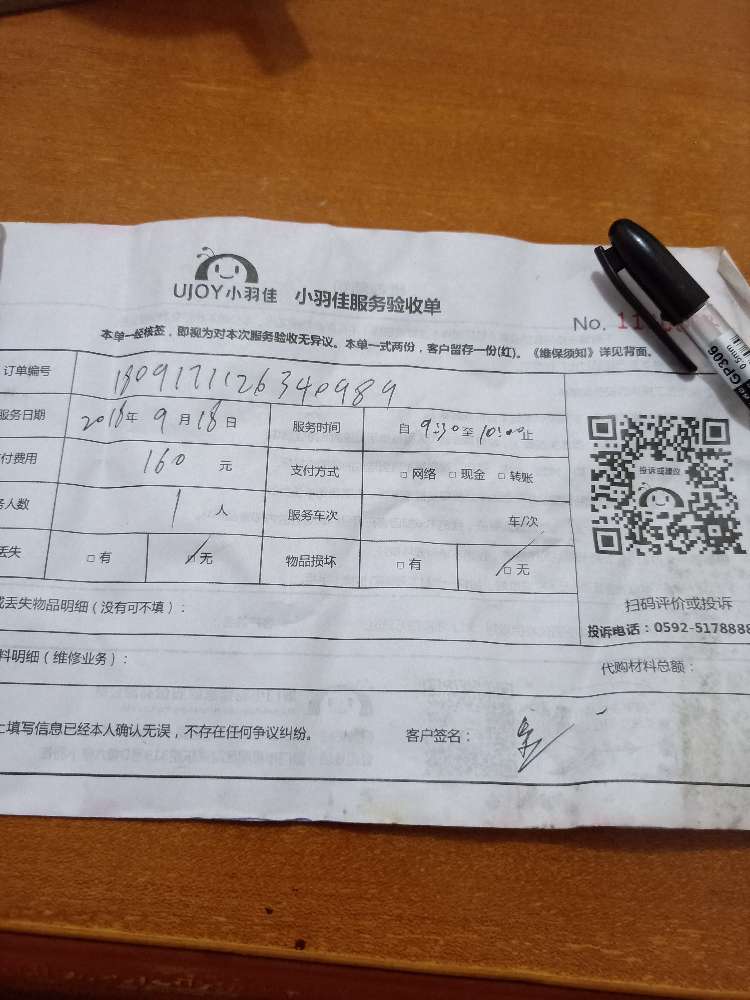 UJOY小羽佳 小羽佳服务验收单
No. 11
本单一经核签，即视为对本次服务验收无异议。本单一式两份，客户留存一份(红)。《维保须知》详见背面。
订单编号 1809171126340989
服务日期 2018年 9 月 18 日 服务时间 自 9:30 至 10:00 止
付费用 160 元 支付方式 □ 网络 □ 现金 □ 转账
人数 1 人 服务车次 车/次
丢失 □ 有 □ 无 物品损坏 □ 有 □ 无
投诉或建议
扫码评价或投诉
投诉电话：0592-5178888
丢失物品明细（没有可不填）：
料明细（维修业务）： 代购材料总额：
填写信息已经本人确认无误，不存在任何争议纠纷。 客户签名：
GP306
0.5mm